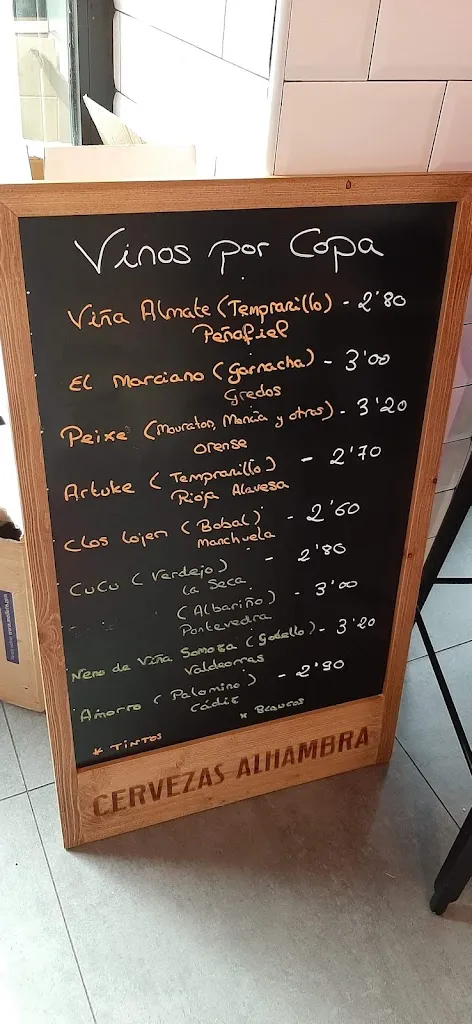 Vinos por Copa
Viña Almate (Tempranillo) - 2'80
Peñafiel
El Marciano (Garnacha) - 3'00
Gredos
Peixe (Mouraton, Mencía y otras) - 3'20
Orense
Artuke (Tempranillo) - 2'70
Rioja Alavesa
Clos Lojen (Bobal) - 2'60
Manchuela
CUCÚ (Verdejo) - 2'80
La Seca
(Albariño) - 3'00
Pontevedra
Neno de Viña Somoza (Godello) - 3'20
Valdeorras
Amorro (Palomino) - 2'90
Cádiz
* Blancos
* TINTOS
CERVEZAS ALHAMBRA